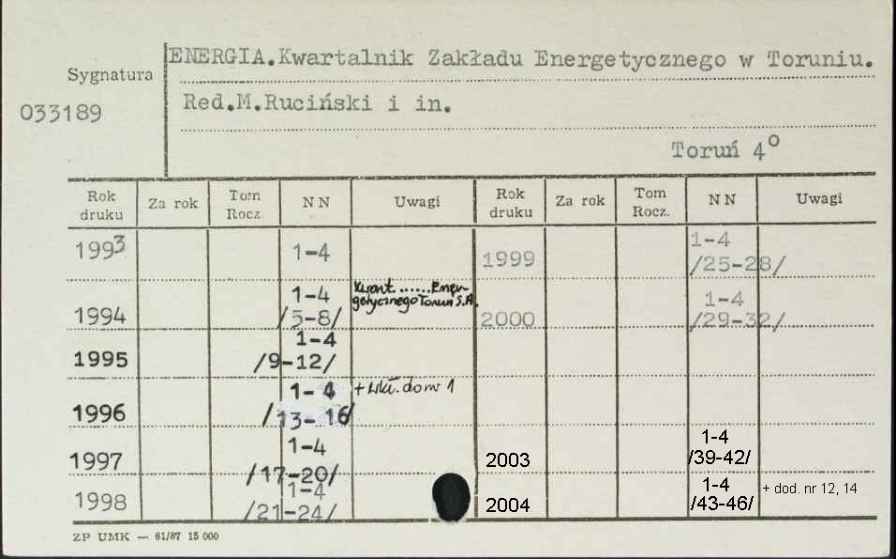 ENERGIA.Kwartalnik Zakładu Energetycznego w Toruniu.
Sygnatura
033189
Red.M.Ruciński i in.
Toruń 4°
Rok druku Za rok Tom Rocz. N N Uwagi Rok druku Za rok Tom Rocz. N N Uwagi
1993 1-4 1999 1-4 /25-28/
1994 1-4 /5-8/ Kwart. ...... Ener-
getycznego Toruń S.A. 2000 1-4 /29-32/
1995 1-4 /9-12/
1996 1-4 /13-16/ + 1
1997 1-4 /17-20/ 2003 1-4 /39-42/
1998 1-4 /21-24/ 2004 1-4 /43-46/ + dod. nr 12, 14
ZP UMK — 61/87 15 000